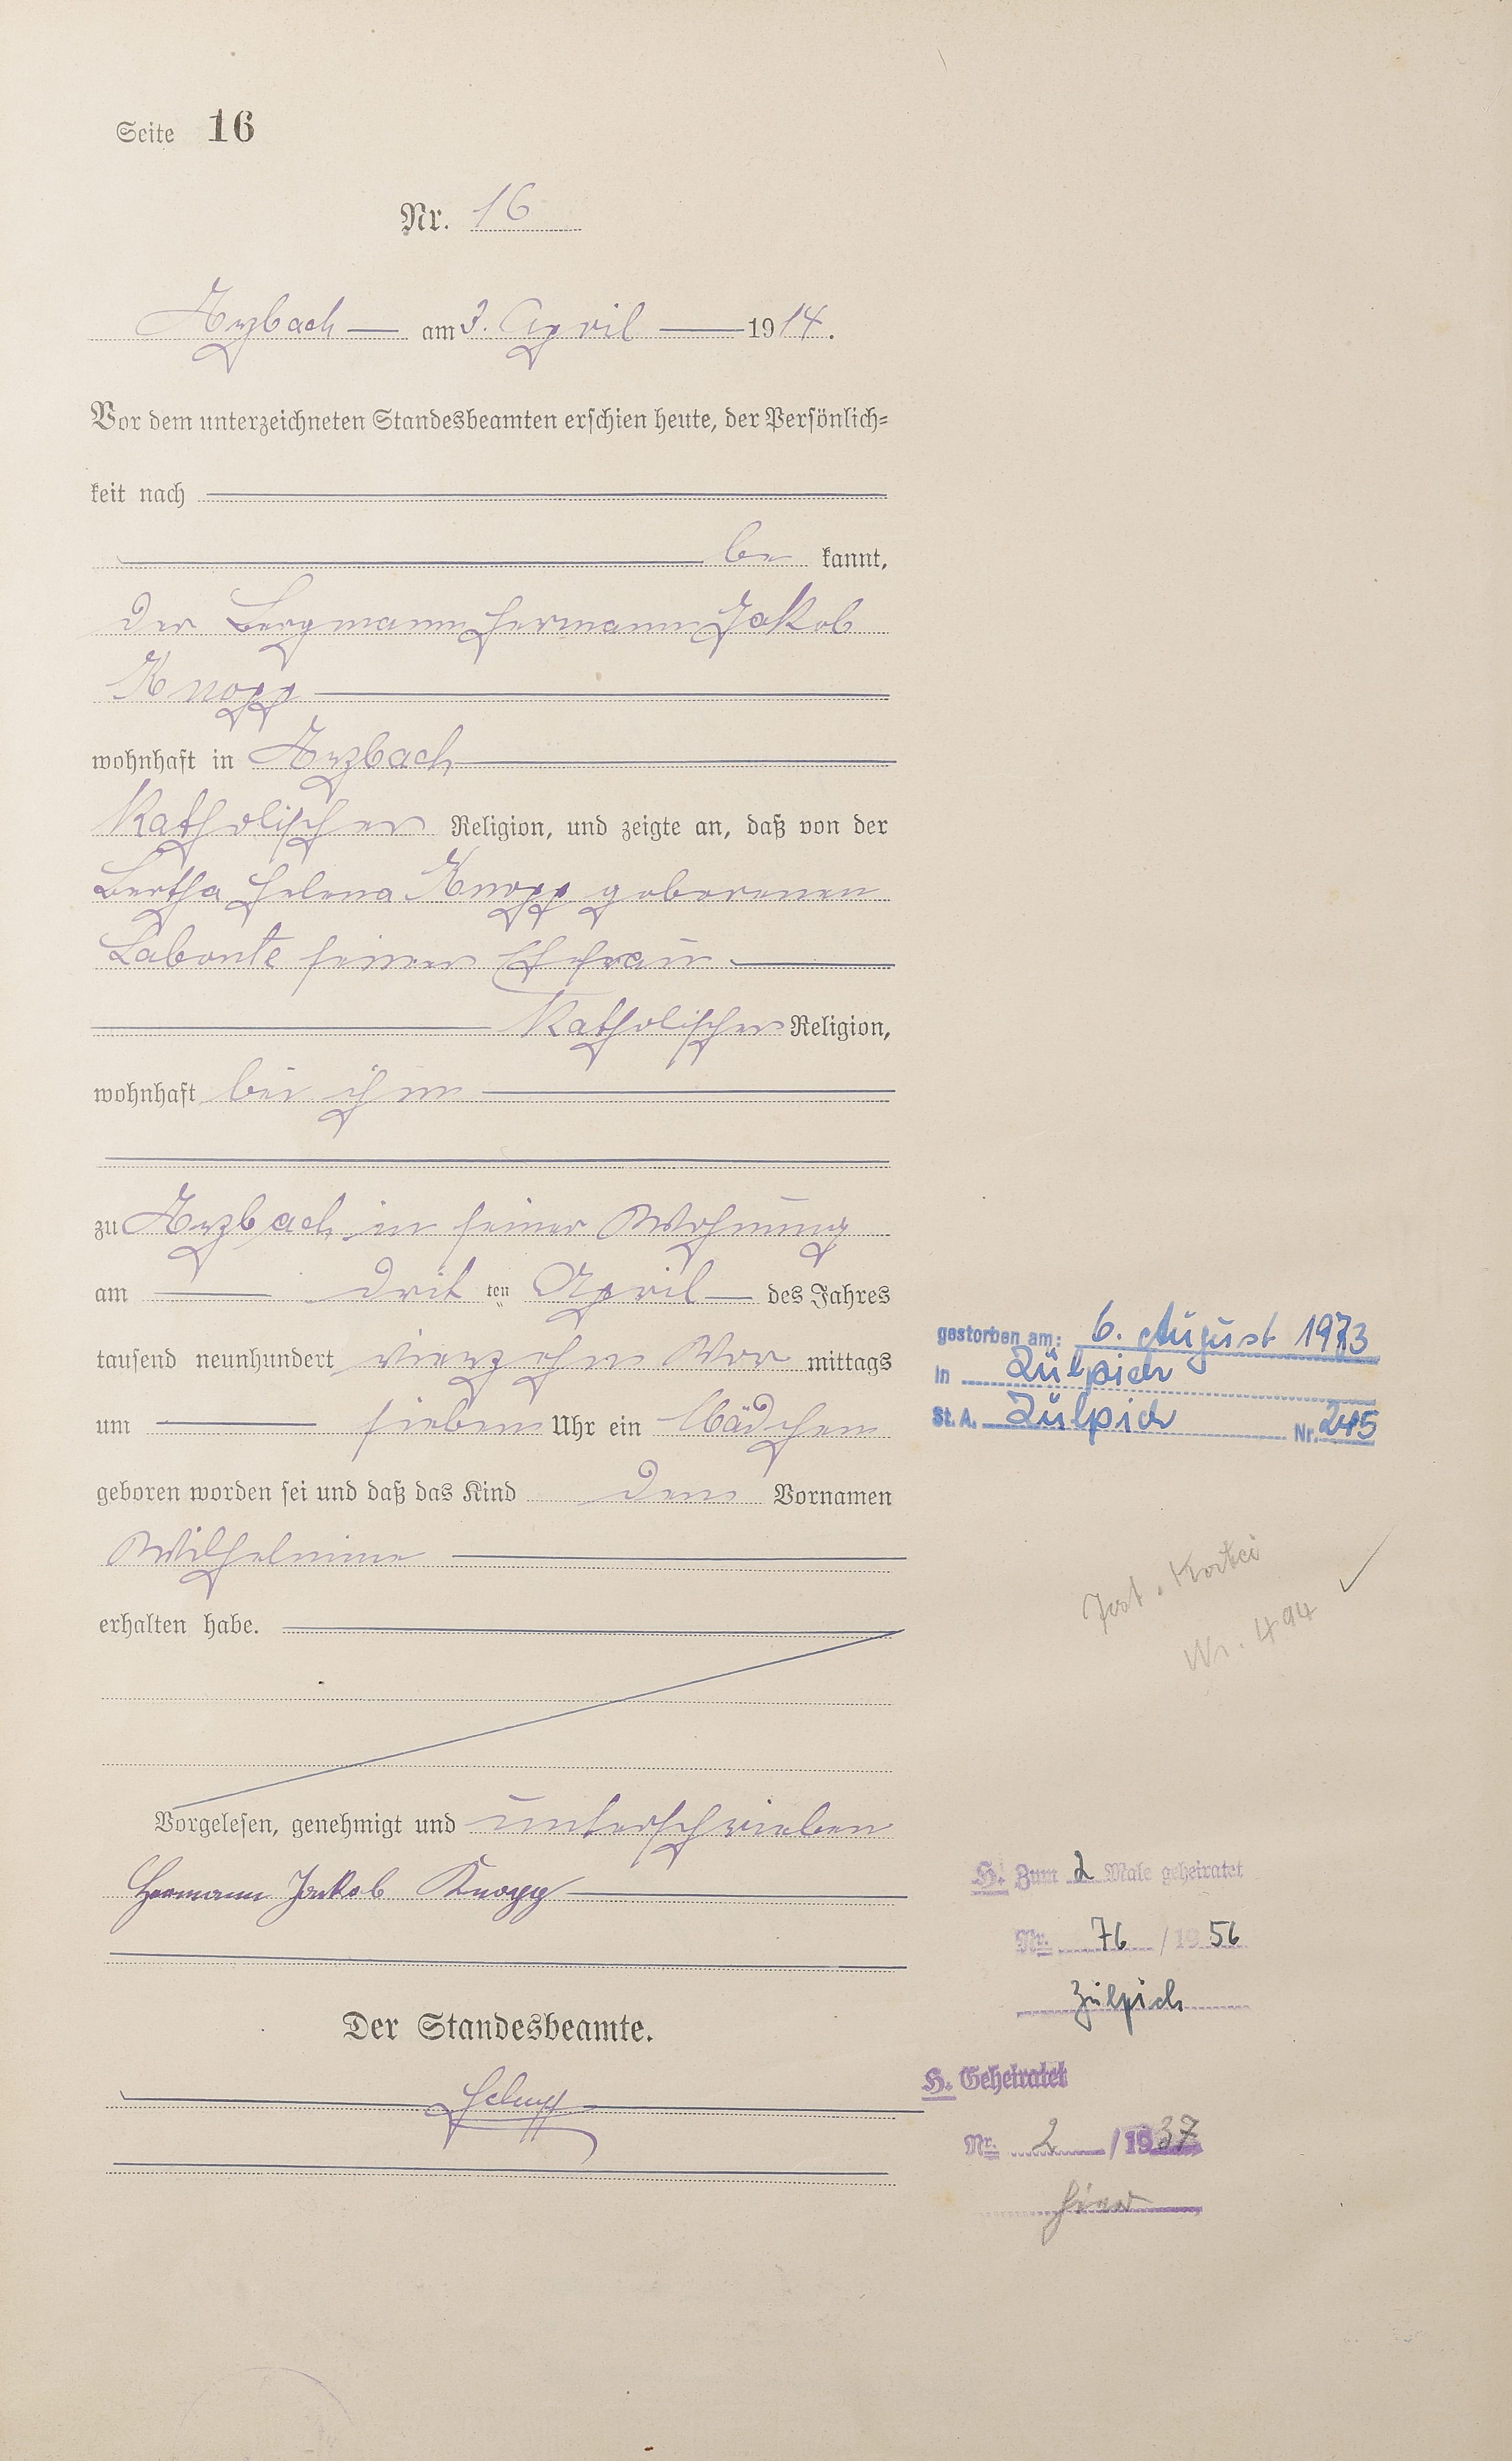 Seite 16
Nr. 16
Arzbach am 3. April 1914.
Vor dem unterzeichneten Standesbeamten erschien heute, der Persönlich=
keit nach
be kannt,
der Bergmann Hermann Jakob
Knopp
wohnhaft in Arzbach
katholischer Religion, und zeigte an, daß von der
Bertha Helena Knopp geborenen
Labonte seiner Ehefrau
katholischer Religion,
wohnhaft bei ihm
zu Arzbach in seiner Wohnung
am drit ten April des Jahres
tausend neunhundert vierzehn Vor mittags
um sieben Uhr ein Mädchen
geboren worden sei und daß das Kind den Vornamen
Wilhelmine
erhalten habe.
Vorgelesen, genehmigt und unterschrieben
Hermann Jakob Knopp
Der Standesbeamte.
gestorben am: 6. August 1973
in Zülpich
St. A. Zülpich Nr. 245
Nr. 494
H. Zum 2 Male geheiratet
Nr. 76 / 1956
Zülpich
H. Geheiratet
Nr. 2 / 1937
hier